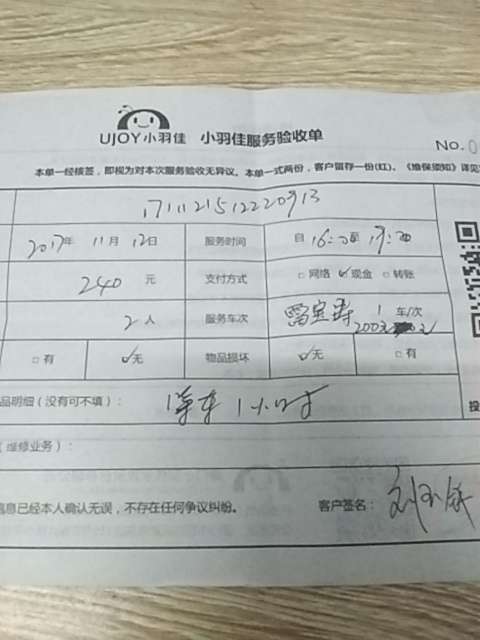 UJOY小羽佳 小羽佳服务验收单
No.0
本单一经核签，即视为对本次服务验收无异议。本单一式两份，客户留存一份(红)。《维保须知》详见
1711121512220913
2017年 11月 12日 服务时间 自 16:00至 19:00
240 元 支付方式 □网络 ☑现金 □转账
2人 服务车次 雷宝涛 1 车/次
□有 ☑无 物品损坏 ☑无 □有
品明细（没有可不填）： 停车1小时
（维修业务）：
信息已经本人确认无误，不存在任何争议纠纷。 客户签名：